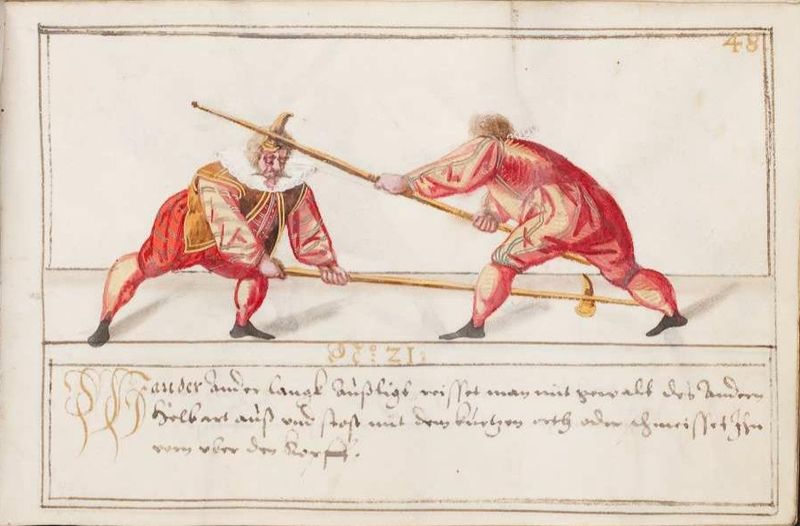 48
No: 21:
Wan der ander langk außligt reisset man mit gewalt des Andern
Helbart auß und stost mit dem kurtzen orth oder schmeisset Ihn
vorn vber den Kopff.